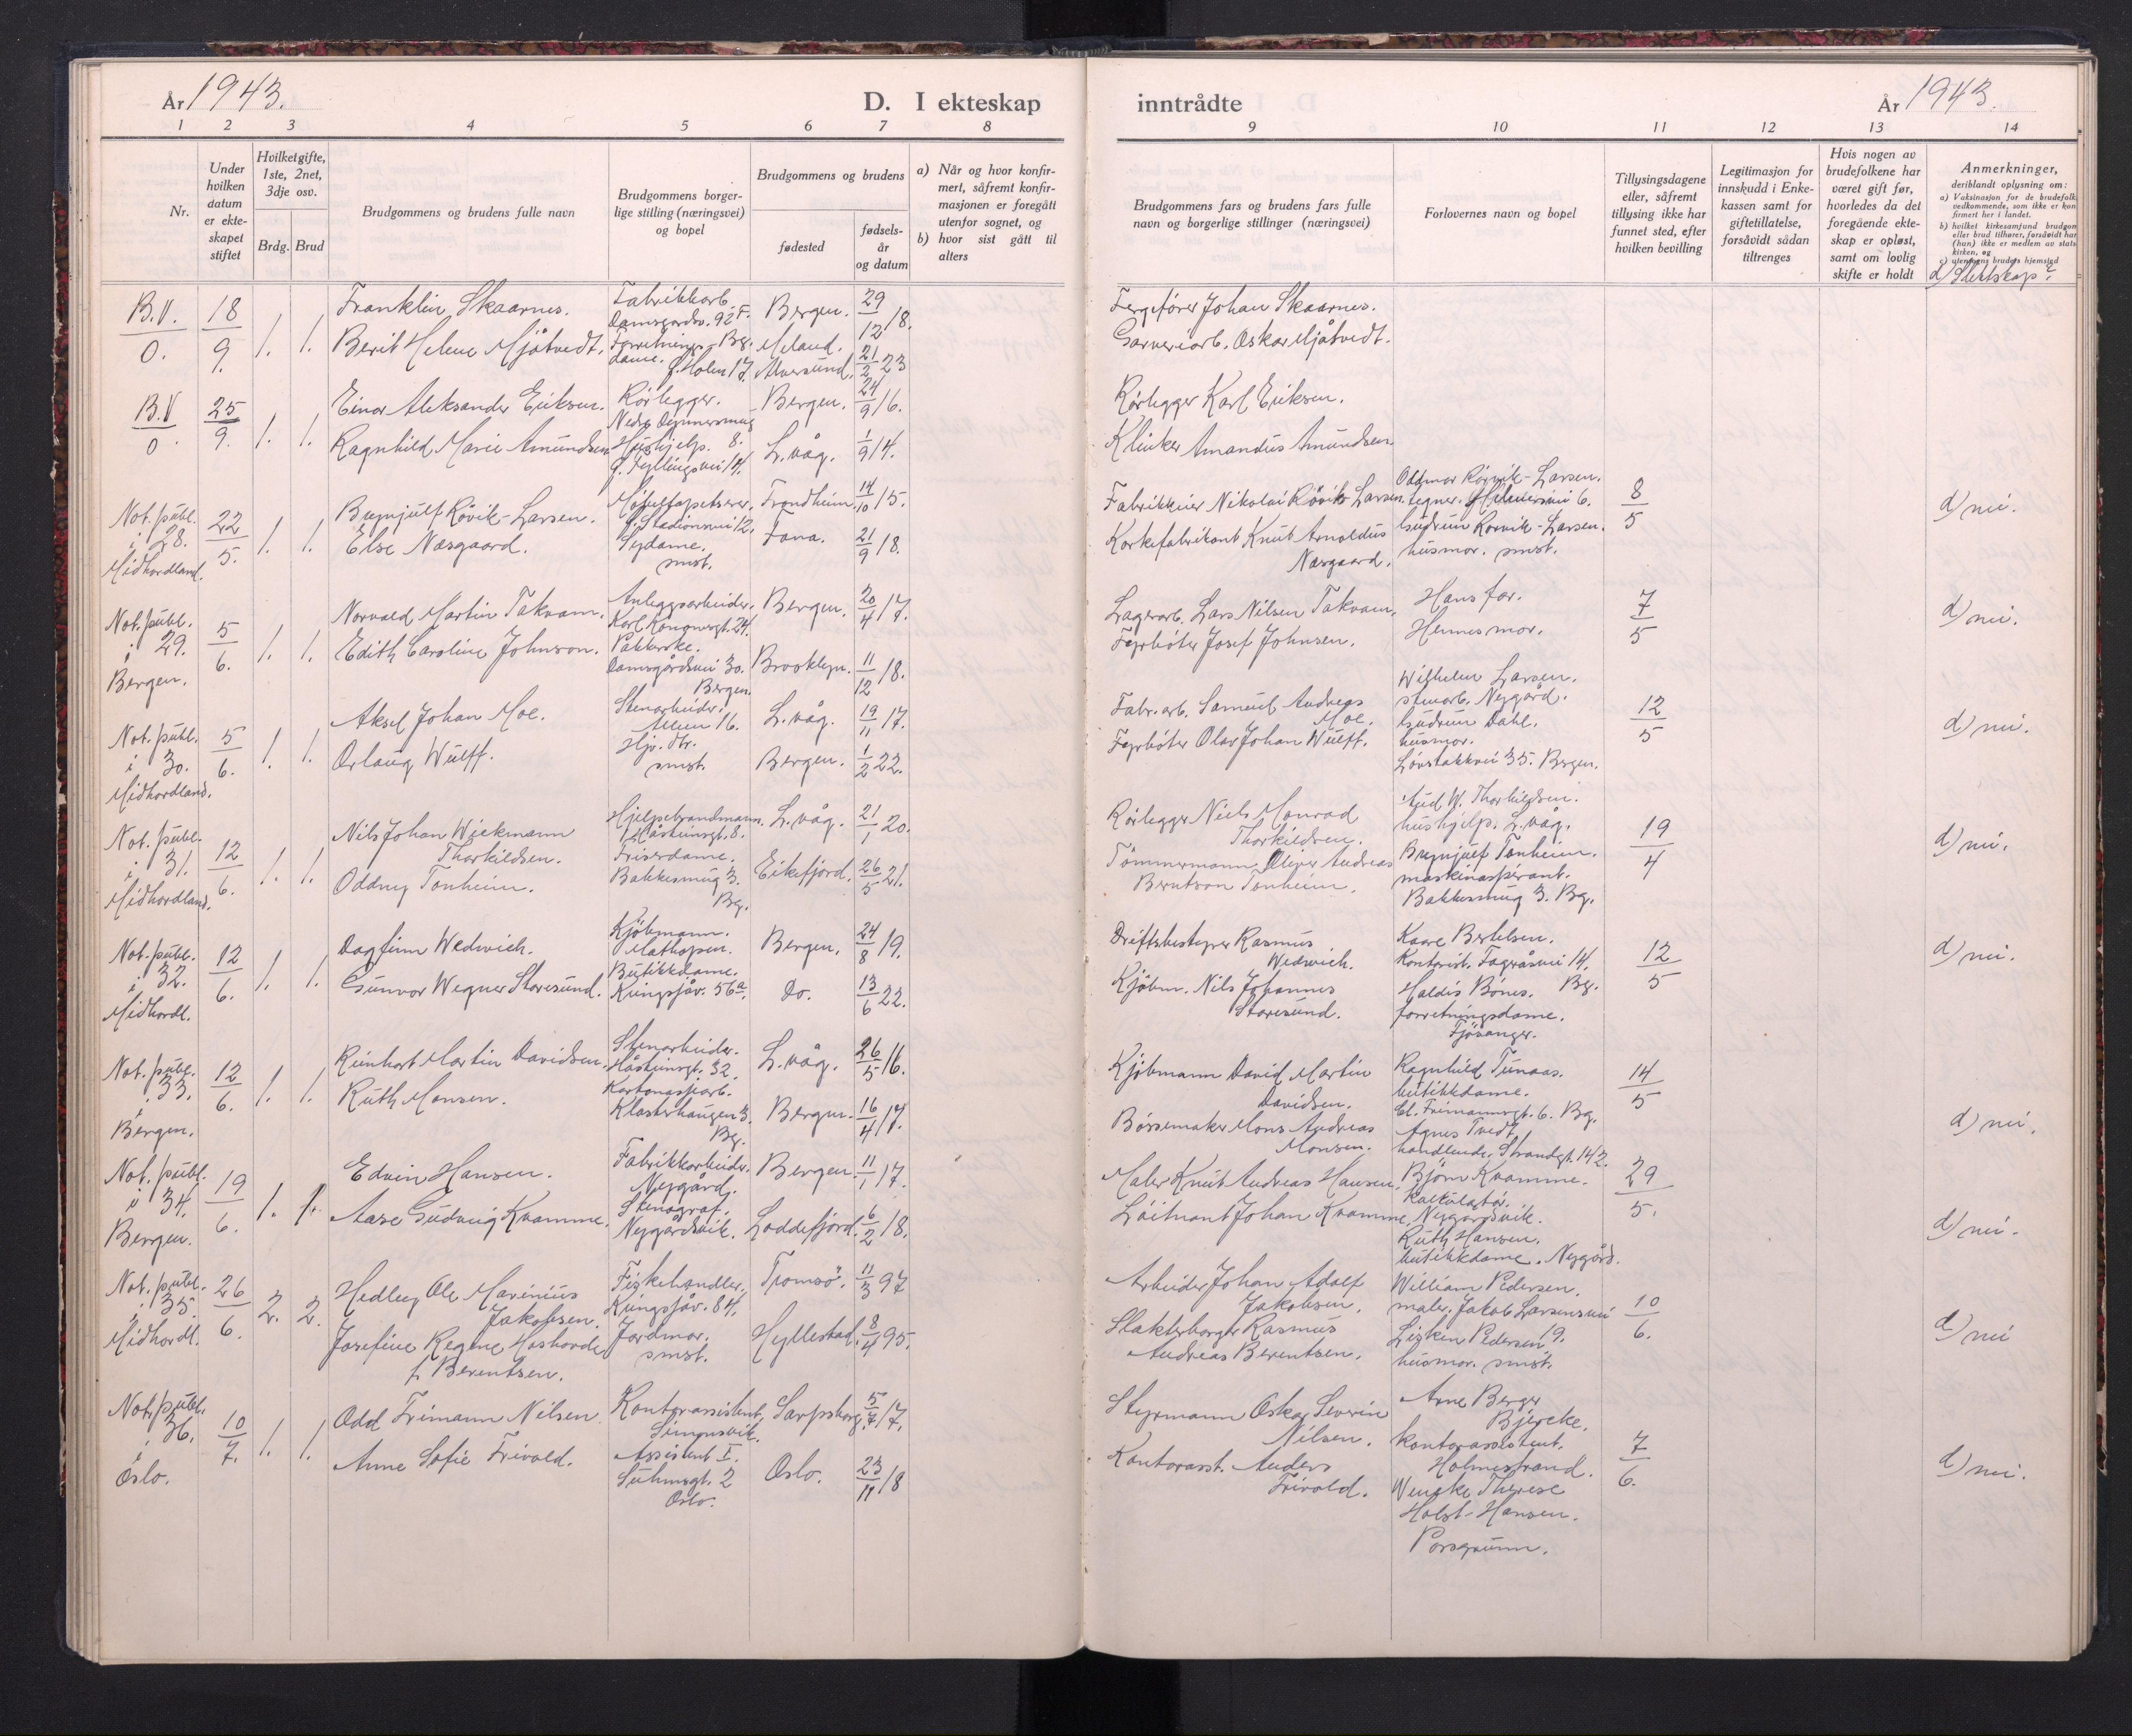 År 1943.
D. I ekteskap
1 2 3 4 5 6 7 8
Nr.
Under
hvilken
datum
er ekte-
skapet
stiftet
Hvilket gifte,
1ste, 2net,
3dje osv.
Brdg. Brud
Brudgommens og brudens fulle navn
Brudgommens borger-
lige stilling (næringsvei)
og bopel
Brudgommens og brudens
fødested
fødsels-
år
og datum
a) Når og hvor konfir-
mert, såfremt konfir-
masjonen er foregått
utenfor sognet, og
b) hvor sist gått til
alters
B.V.
0.
18/9.
1. 1.
Franklin Skaarnes.
Berit Helene Mjåtvedt.
Fabrikkarb.
Damsgardsv. 92 F.
Forretnings- Bg.
dame. Ø. Holen 17.
Bergen.
Meland.
Alversund.
29/12 18.
21/2 23
B.V
0.
25/9.
1. 1.
Einar Aleksander Eriksen.
Ragnhild Marie Amundsen
Rörlegger.
Hushjelp. 8.
G. Fyllingsvei 14.
Bergen.
L.våg.
24/9 16.
1/9 14.
Not. publ.
i 28.
Midhordland.
22/5.
1. 1.
Brynjulf Rövik-Larsen.
Else Næsgaard.
Møbeltapetserer.
G. Stadionsvei 12.
Sydame.
smst.
Trondheim
Fana.
14/10 15.
21/9 18.
Not. publ.
i 29.
Bergen.
5/6.
1. 1.
Norvald Martin Takvam.
Edith Caroline Johnson.
Anleggsarbeider.
Karl Konowsgt. 24.
Pakkerske.
Damsgårdsvei 30.
Bergen.
Bergen.
Brooklyn.
20/4 17.
11/12 18.
Not. publ.
i 30.
Midhordland.
5/6.
1. 1.
Aksel Johan Moe.
Orlaug Wulff.
Stenarbeider.
Alleen 16.
Hjv. dtr.
smst.
L.våg.
Bergen.
19/11 17.
1/2 22.
Not. publ.
i 31.
Midhordland.
12/6.
1. 1.
Nils Johan Wickmann
Thorkildsen.
Oddny Tonheim.
Hjelpebrandmann.
Håsteinsgt. 8.
Friserdame.
Bakkesmug 3.
Bg.
L.våg.
Eikefjord.
21/1 20.
26/5 21.
Not. publ.
i 32.
Midhordl.
12/6.
1. 1.
Dagfinn Wedvich.
Gunvor Wegner Storesund.
Kjöbmann.
Mathopen.
Butikkdame.
Kringsjåv. 56a.
Bergen.
Do.
24/8 19.
13/6 22.
Not. publ.
i 33.
Bergen.
12/6.
1. 1.
Reinhart Martin Davidsen.
Ruth Monsen.
Stenarbeider.
Håsteinsgt. 32.
Kartonasjearb.
Klosterhaugen 3.
Bg.
L.våg.
Bergen.
26/5 16.
16/4 17.
Not. publ.
i 34.
Bergen.
19/6.
1. 1.
Edvin Hansen.
Aase Gudveig Kvamme.
Fabrikkarbeider.
Nygård.
Stenograf.
Nygårdsvik.
Bergen.
Loddefjord.
11/1 17.
6/2 18.
Not. publ.
i 35.
Midhordl.
26/6.
2. 2.
Hedley Ole Marinius
Jakobsen.
Josefine Regine Hashorde
f. Berentsen.
Fiskehandler.
Kringsjåv. 84.
Jordmor.
smst.
Tromsö.
Hyllestad.
11/3 97
8/4 95.
Not. publ.
i 36.
Oslo.
10/7.
1. 1.
Odd Frimann Nilsen
Anne Sofie Frivold.
Kontorassistent.
Simonsvik.
Assistent I.
Suhmsgt. 2
Oslo.
Sarpsborg.
Oslo.
5/7 17.
23/11 18
inntrådte
År 1943.
9 10 11 12 13 14
Brudgommens fars og brudens fars fulle
navn og borgerlige stillinger (næringsvei)
Forlovernes navn og bopel
Tillysingsdagene
eller, såfremt
tillysing ikke har
funnet sted, efter
hvilken bevilling
Legitimasjon for
innskudd i Enke-
kassen samt for
giftetillatelse,
forsåvidt sådan
tiltrenges
Hvis nogen av
brudefolkene har
været gift før,
hvorledes da det
foregående ekte-
skap er opløst,
samt om lovlig
skifte er holdt
Anmerkninger,
deriblandt oplysning om:
a) Vaksinasjon for de brudefolk
vedkommende, som ikke er kon
firmert her i landet.
b) hvilket kirkesamfund brudgom
eller brud tilhører, forsåvidt han
(hun) ikke er medlem av stats
kirken, og
c) utenbys brudens hjemsted
d) Slektskap?
Fergefører Johan Skaarnes.
Garveriarb. Oskar Mjåtvedt.
Rörlegger Karl Eriksen.
Klinker Amandus Amundsen.
Fabrikkeier Nikolai Rövik-Larsen.
Korkefabrikant Knut Arnoldus
Næsgaard.
Oddmar Rörvik-Larsen.
Gudrun Rorvik-Larsen.
husmor. smst.
8/5
d) nei.
Lagerarb. Lars Nilsen Takvam.
Fyrbøter Josef Johnsen.
Hans far.
Hennes mor.
7/5
d) nei.
Fabr.arb. Samuel Andreas
Moe.
Fyrbøter Olav Johan Wulff.
Wilhelm Larsen.
stenarb. Nygård.
Gudrun Dahl.
husmor.
Løvstakkvei 35. Bergen.
12/5
d) nei.
Rörlegger Niels Monrad
Thorkildsen.
Tömmermann Oliver Andreas
Berntson Tonheim.
Aud W. Thorkildsen.
hushjelp. L.våg.
Brynjulf Tonheim.
maskinasperant.
Bakkesmug 3. Bg.
19/4
d) nei.
Driftsbestyrer Rasmus
Wedvich.
Kjöbm. Nils Johannes
Storesund.
Kaare Bertelsen.
Kontorist. Fageråsvei 14.
Bg.
Haldis Bönes.
forretningsdame.
Fjösanger.
12/5
d) nei.
Kjöbmann David Martin
Davidsen.
Børsemaker Mons Andreas
Monsen.
Ragnhild Tunaas.
butikkdame.
Cl. Frimannsgt. 6. Bg.
Agnes Tvedt.
handlende. Strandgt. 142.
14/5
d) nei.
Maler Knut Andreas Hansen.
Löitnant Johan Kvamme.
Björn Kvamme.
Kalkulatør.
Nygårdsvik.
Ruth Hansen.
butikkdame. Nygård.
29/5.
d) nei.
Arbeider Johan Adolf
Jakobsen.
Slakterborger Rasmus
Andreas Berentsen.
William Pedersen.
maler. Jakob Larsensvei
19.
Lisken Pedersen
husmor. smst.
10/6.
d) nei
Styrmann Oskar Severin
Nilsen.
Kontorasst. Anders
Frivold.
Arne Berger
Bjercke.
kontorassistent.
Holmestrand.
Wencke Therese
Holst-Hansen.
Porsgrunn.
7/6.
d) nei.